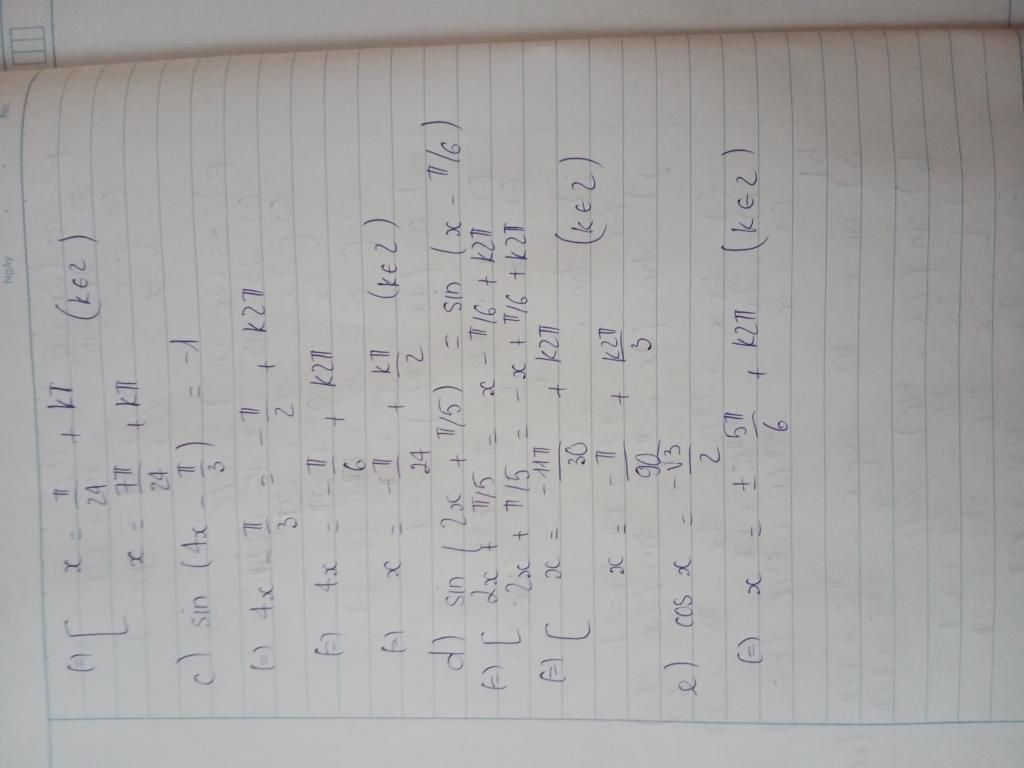 Ngày
No.
(=) [ x = π/24 + kπ
x = 7π/24 + kπ (k ∈ Z)
c) sin (4x - π/3) = -1
(=) 4x - π/3 = -π/2 + k2π
(=) 4x = -π/6 + k2π
(=) x = -π/24 + kπ/2 (k ∈ Z)
d) sin (2x + π/5) = sin (x - π/6)
(=) [ 2x + π/5 = x - π/6 + k2π
2x + π/5 = -x + π/6 + k2π
(=) [ x = -11π/30 + k2π
x = -π/90 + k2π/3 (k ∈ Z)
e) cos x = -√3/2
(=) x = ± 5π/6 + k2π (k ∈ Z)